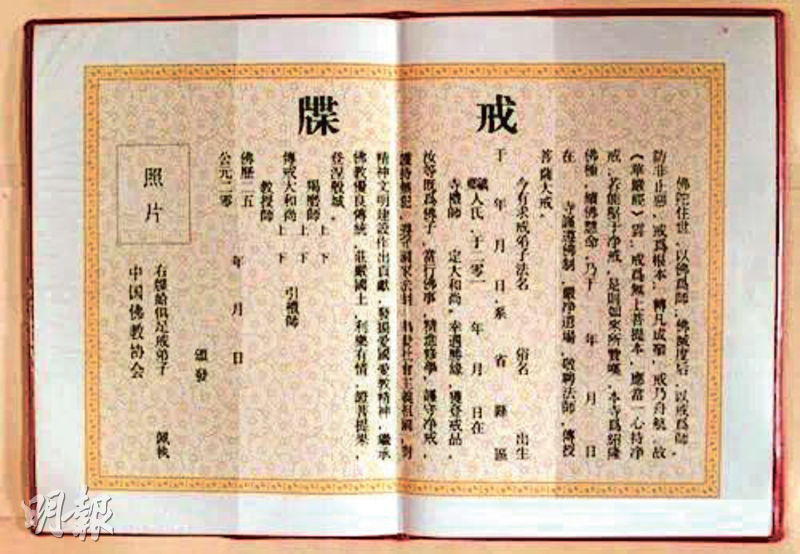 戒牒
佛陀住世,以佛爲師,佛滅度后,以戒爲師。
防非止惡,戒爲根本,轉凡成聖,戒乃舟航。故
《華嚴經》雲,戒爲無上菩提本,應當一心持净
戒,若能堅于净戒,是則如來所贊嘆。本寺爲紹隆
佛種,續佛慧命,乃于 年 月 日
在 寺謹遵遺制,嚴净道場,敬聘法師,傳授
菩薩大戒。
今有求戒弟子法名 俗名 出生
于 年 月 日,系 省 縣 區
人氏,于二零一 年 月 日在
寺禮師 定大和尚,幸遇勝緣,獲登戒品。
汝等既爲佛子,當行佛事,精進修學,護守净戒,
護持無犯,遵守國家法制,社會主義祖國,對
精神文明建設作出貢獻,發揚愛國愛教精神,繼承
佛教優良傳統,莊嚴國土,利樂有情,證菩提果,
登涅槃城。
羯磨師 上 下
傳戒大和尚 上 下 引禮師
教授師 上 下
佛歷二五 年 月 日
公元二零
頒發
右牒給俱足戒弟子 佩執
中国佛教协会
照片
明報